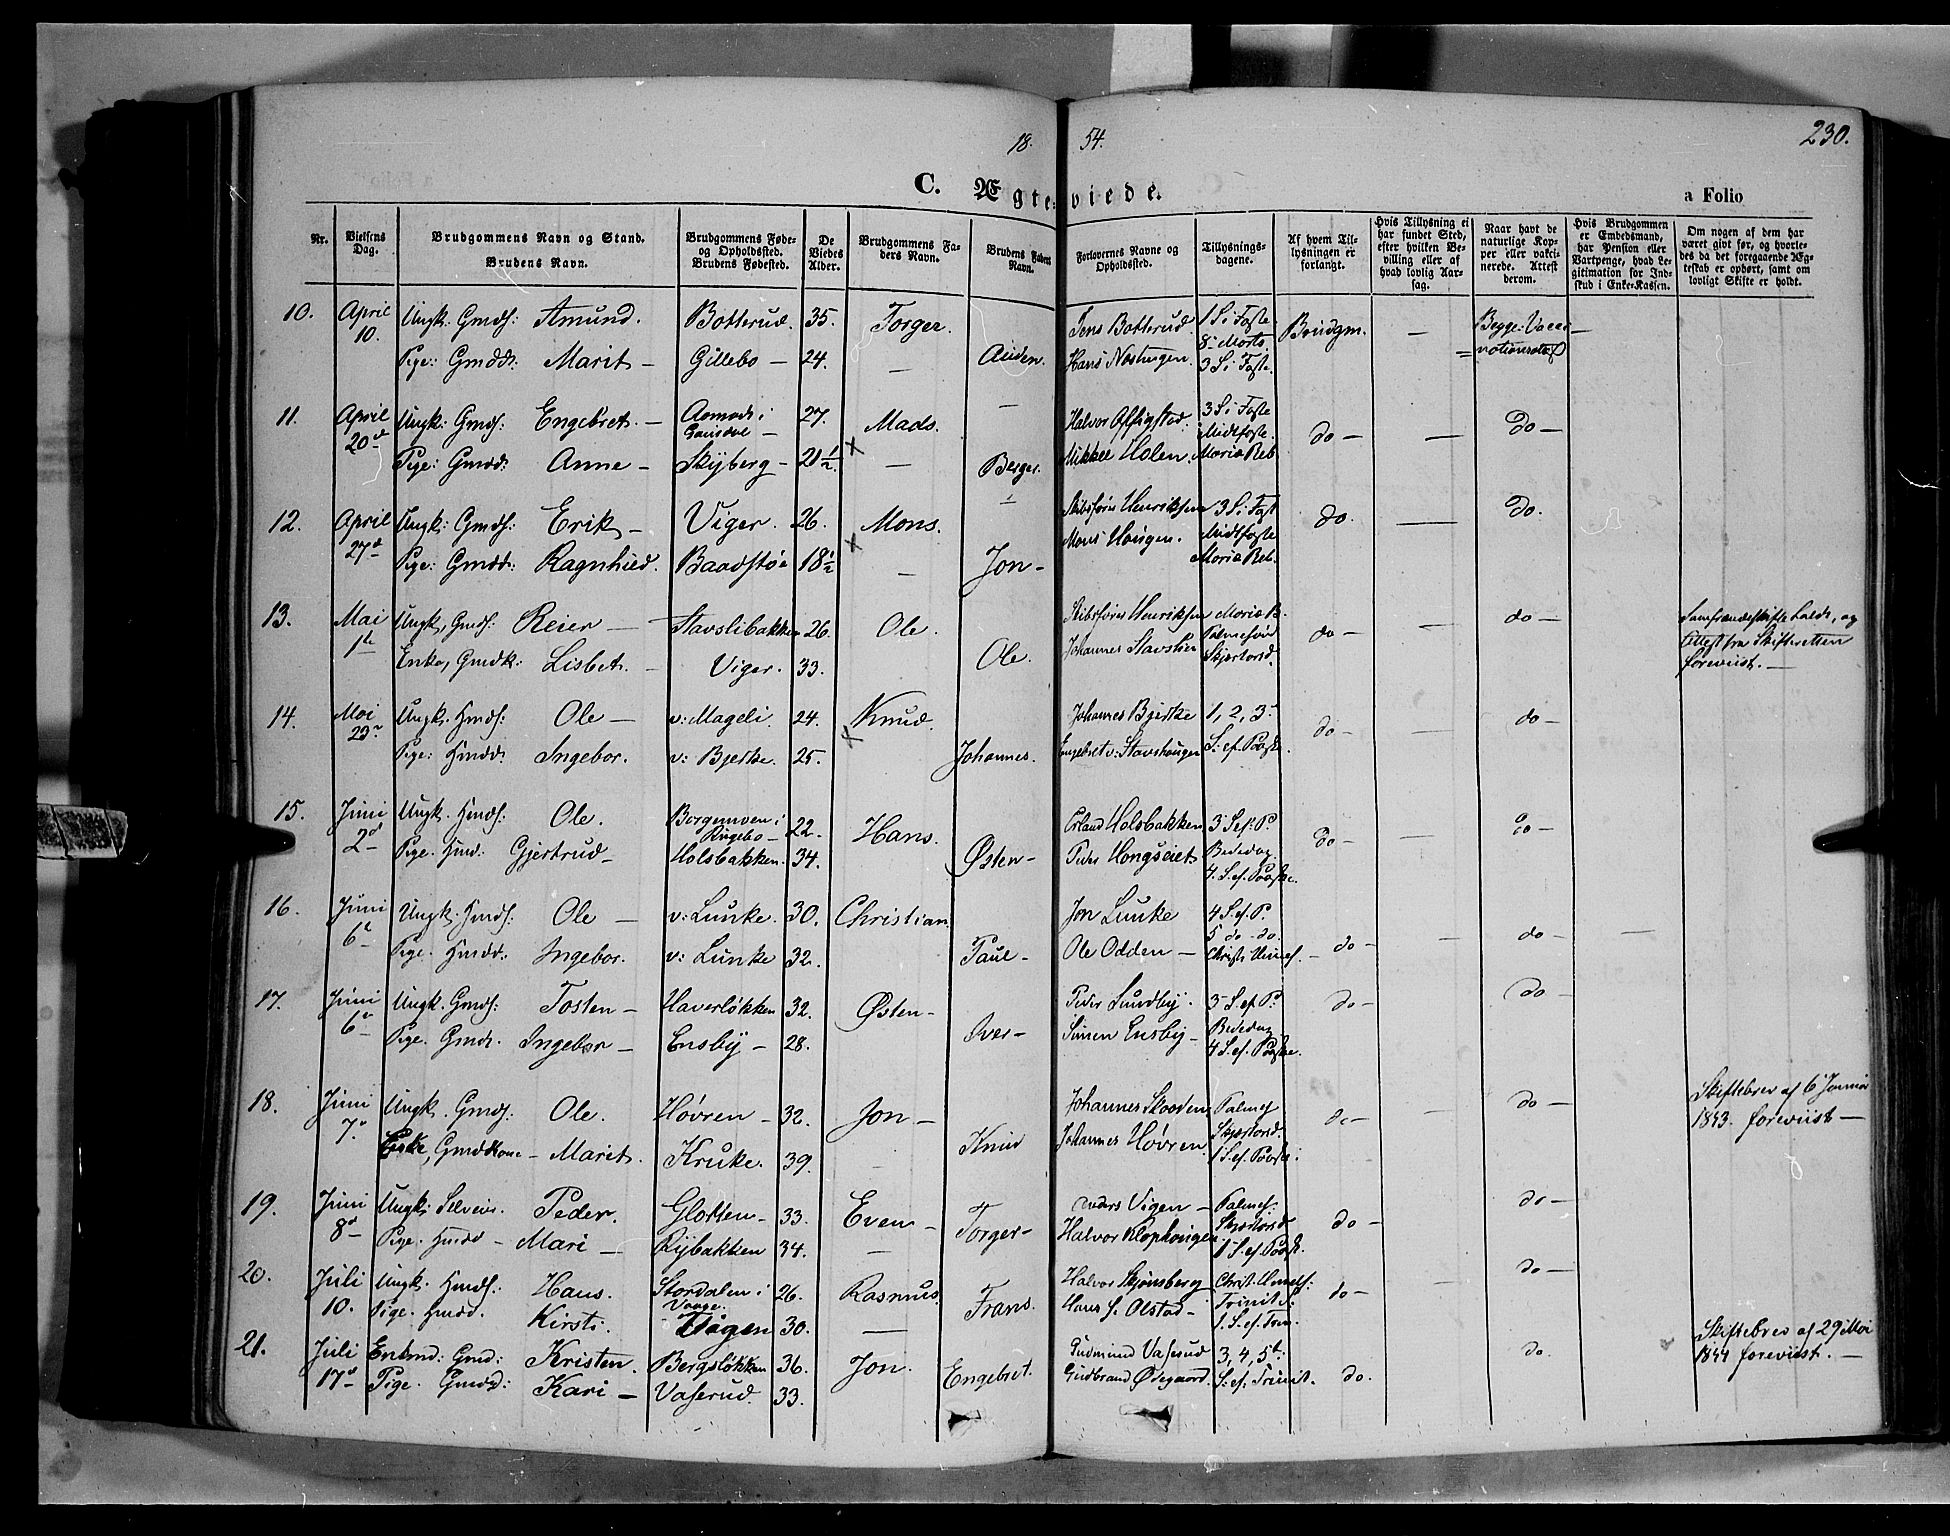 230.
18. 54.
C. Ægte-viede. a Folio
Nr. Vielsens Dag. Brudgommens Navn og Stand. Brudens Navn. Brudgommens Føde- og Opholdssted. Brudens Fødested. De Viedes Alder. Brudgommens Faders Navn. Brudens Faders Navn. Forlovernes Navne og Opholdssted. Tillysningsdagene. Af hvem Tillysningen er forlangt. Hvis Tillysning ei har fundet Sted, efter hvilken Bevilling eller af hvad lovlig Aarsag. Naar havt de naturlige Kopper eller vaksinerede. Attest derom. Hvis Brudgommen er Embedsmand, har Pension eller Vartpenge, hvad Legitimation for Indskud i Enke-Kassen. Om nogen af dem har været givt før, og hvorledes da det foregaaende Ægteskab er ophørt, samt om lovligt Skifte er holdt.
10. April 10. Ungk: Gmds: Amund. Botterud. 35. Torger. Jens Botterud. 1 S. i Faste 8 Marts Brudgm. — Begge: —
Pige: Gmdd: Marit — Gillebo — 24. — Auden. Hans 3 S. i Faste.
11. April 20d Ungk: Gmds: Engebret. — Aamodt i Gausdal — 27. Mads. Halvor 3 S. i Faste Midtfaste do — — do —
Pige: Gmdd: Anne — Skyberg — 21 1/2 × — Berger. Mikkel Holen. Mariæ Beb.
12. April 27d Ungk: Gmds: Erik — Viger. 26. Mons. Henriksen 3 S. i Fast Midtfaste do. — do.
Pige: Gmdd: Ragnhild. Baadstø 18 1/2 × — Jon — Mons Haugen. Mariæ Beb.
13. Mai 1st Ungk, Gmds: Reier — Stavslibakken 26. Ole. Henriksen Mariæ B. Palmesøn do — — do — holdt, og
Enke, Gmdk: Lisbet. — Viger. 33. Ole. Johannes Stavslien Skjærtorsd. Attest fra Skifteretten foreviist. —
14. Mai 23 Ungk. Hmds: Ole — v: Mageli 24. Knud. Johannes Bjerke 1, 2, 3 do — — do —
Pige: Hmdd: Ingebor. v: Bjerke. 25. × Johannes. Engebret v: Stavshaugen S. ef. Paaske.
15. Juni 2d Ungk. Hmds: Ole. i Ringebo — 22. Hans. Erland Holsbakken 3 S. ef. P. do — — do —
Pige. Hmd: Gjertrud — Holsbakken. 34. Østen — Peder Bededag 4. S. ef. Paaske.
16. Juni 6t Ungk. Hmds: Ole — v: Lunke. 30. Christian Jon Lunke 4 S. ef. P. 5 do — do. do — — do — —
Pige. Hmdd: Ingebor. v: Lunke 32. Paul — Ole Odden — Christi Himmelf.
17. Juni 6t Ungk. Gmds: Tosten — Haverløkken 32. Østen — Peder Lundby. 3 S. ef. P. do — do —
Pige. Gmdd. Ingebor — Ensby — 28. Iver — Simen Ensby — Bededag 4 S. ef. Paaske.
18. Juni 7d Ungk. Gmds: Ole. Høvren — 32. Jon — Johannes Skaaden Palmes Skjærtorsd. do — — do — Skiftebrev af 6 Januar
Enke, Gmdkone — Marit. Kruke. 39. — Knud Johannes Høvren 1 S. ef. Paaske. 1853. foreviist —
19. Juni 8d Ungk. Selveier. Peder. Glotten — 33. Even — Anders Vigen — Palmes. Skjærtorsd do — do —
Pige. Hmdd — Mari — Rybakken 34. — Torger — Halvor Klophaugen 1 S. ef. Paask.
20. Juli 10. Ungk. Hmds: Hans. Stordalen i Vaage. 26. Rasmus. Halvor Skjønsberg Christi Himelf: Trinit. do — — do —
Pige. Hmdd. Kirsti. 30. — Frans. Hans Olstad — 1. S. ef. Trin.
21. Juli 17d Enkmd: Gmd: Kristen. Bergsløkken 36. Jon. Gudmund Vaserud 3, 4, 5t: do. do. Skiftebrev af 29 Mai
Pige. Gmdd: Kari — Vaserud. 33. Engebret. Gudbrand Ødegaard. S: ef: Trinit. foreviist. —